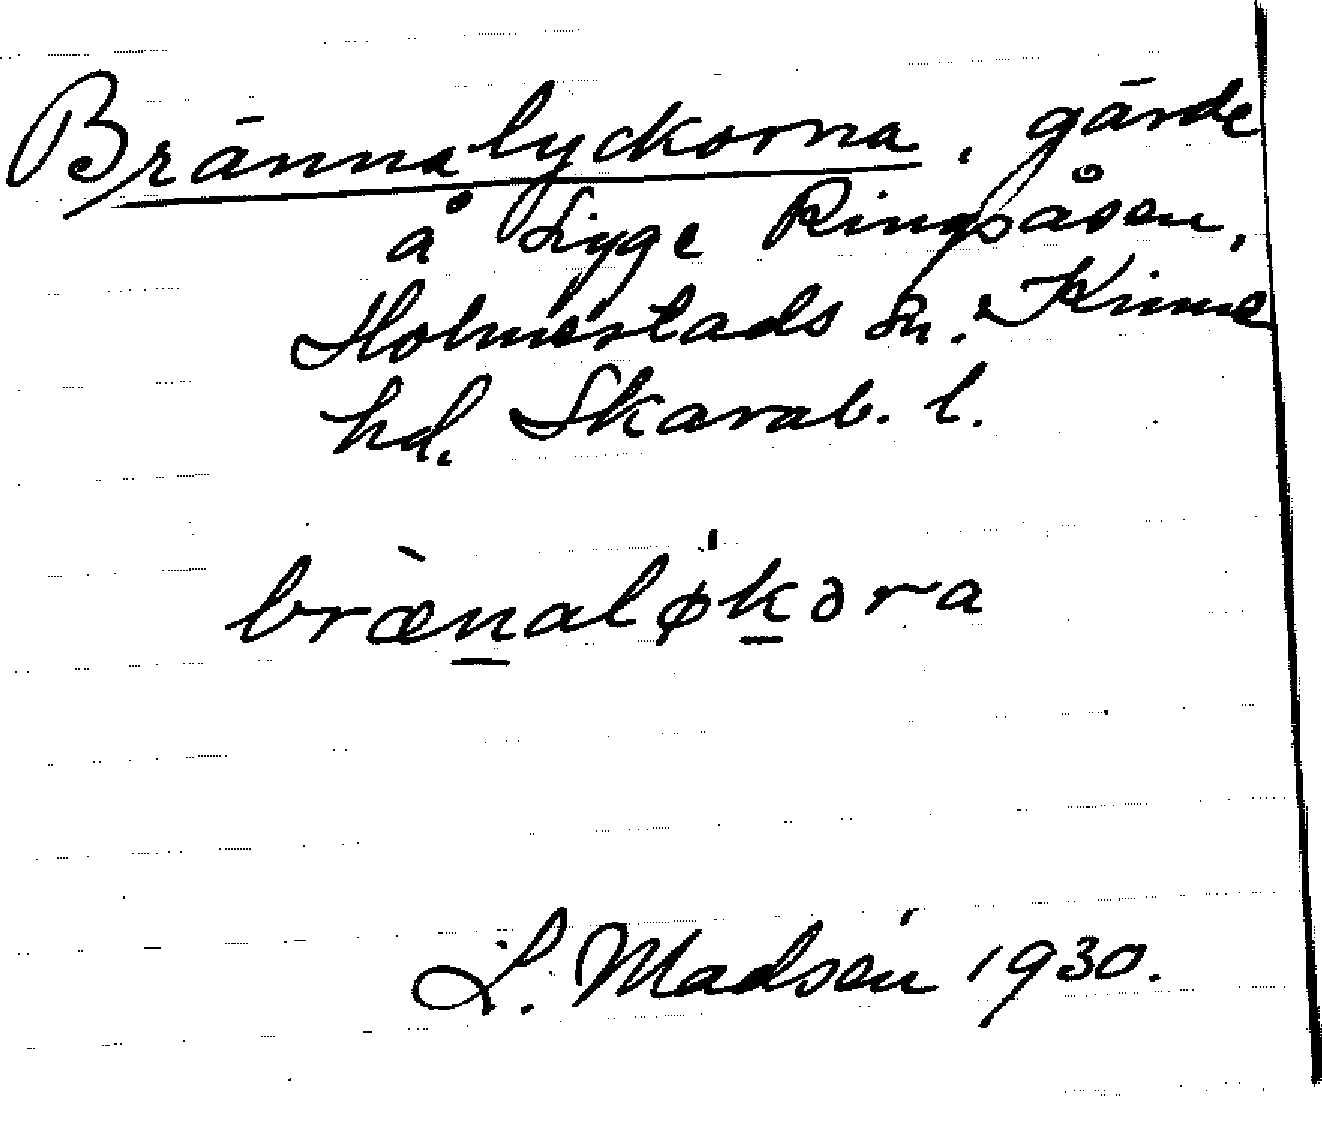 Brännalyckorna, gärde
å Sigge Ringsåsen,
Holmestads sn. Kinne
hd. Skarab. l.
bræ̀n̲aløk̲əra
L. Madsén 1930.